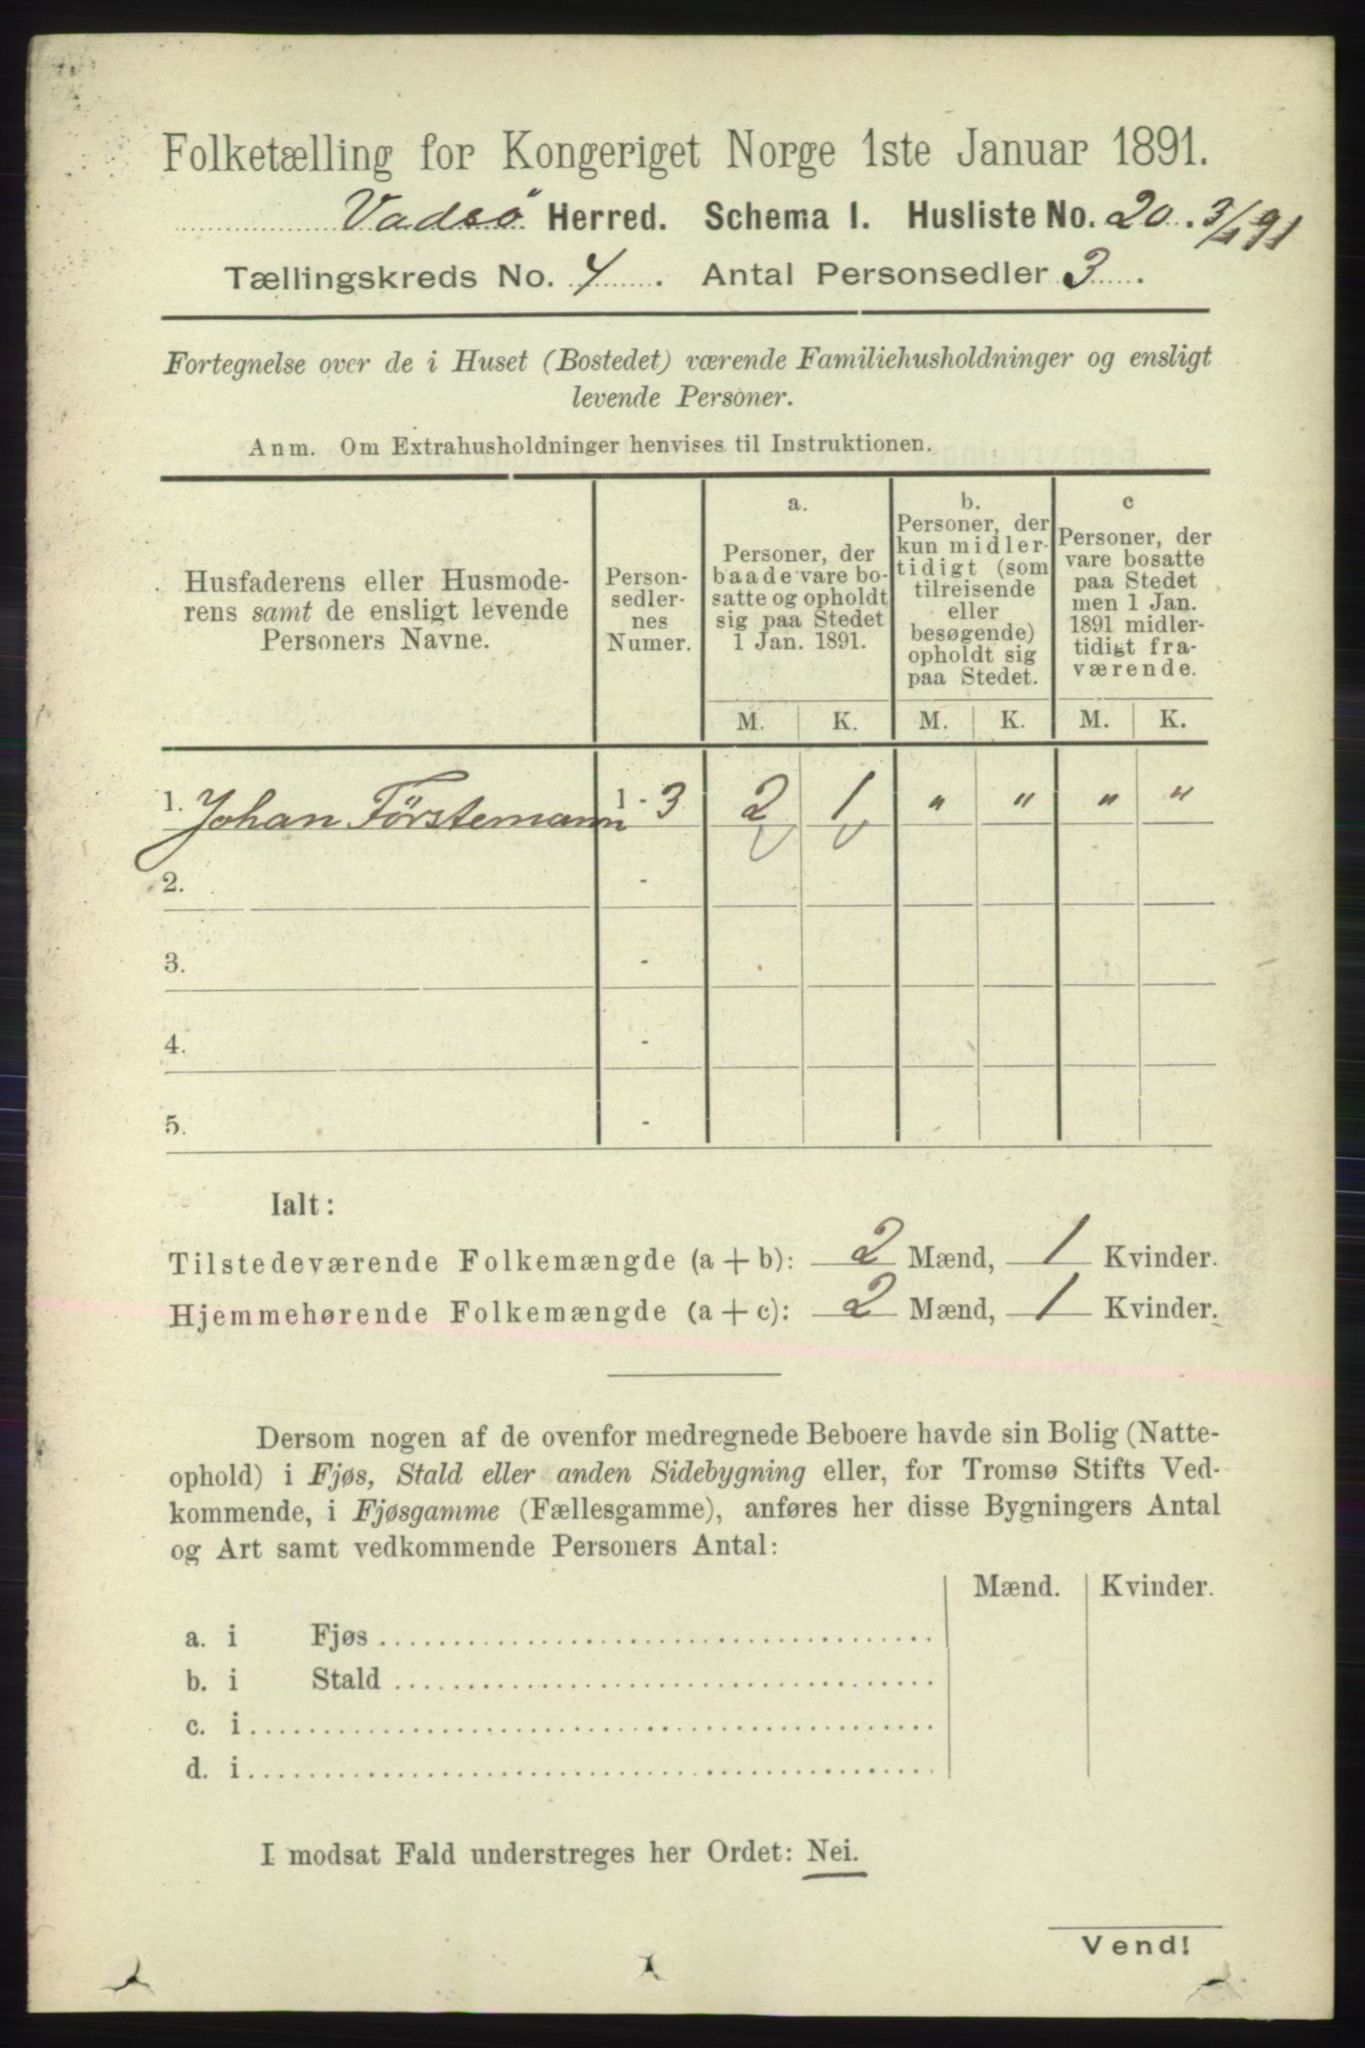 Folketælling for Kongeriget Norge 1ste Januar 1891.
Vadsö Herred. Schema I. Husliste No. 20. 3/1 91
Tællingskreds No. 4. Antal Personsedler 3.
Fortegnelse over de i Huset (Bostedet) værende Familiehusholdninger og ensligt
levende Personer.
Anm. Om Extrahusholdninger henvises til Instruktionen.
Husfaderens eller Husmode-
rens samt de ensligt levende
Personers Navne.
Person-
sedler-
nes
Numer.
a.
Personer, der
baade vare bo-
satte og opholdt
sig paa Stedet
1 Jan. 1891.
b.
Personer, der
kun midler-
tidigt (som
tilreisende
eller
besøgende)
opholdt sig
paa Stedet.
c
Personer, der
vare bosatte
paa Stedet
men 1 Jan.
1891 midler-
tidigt fra-
værende.
M. K. M. K. M. K.
1. Johan Förstemann 1 - 3 2 1 " " " "
2. -
3. -
4. -
5. -
Ialt:
Tilstedeværende Folkemængde (a + b): 2 Mænd, 1 Kvinder.
Hjemmehørende Folkemængde (a + c): 2 Mænd, 1 Kvinder.
Dersom nogen af de ovenfor medregnede Beboere havde sin Bolig (Natte-
ophold) i Fjøs, Stald eller anden Sidebygning eller, for Tromsø Stifts Ved-
kommende, i Fjøsgamme (Fællesgamme), anføres her disse Bygningers Antal
og Art samt vedkommende Personers Antal:
Mænd. Kvinder.
a. i Fjøs
b. i Stald
c. i
d. i
I modsat Fald understreges her Ordet: Nei.
Vend!